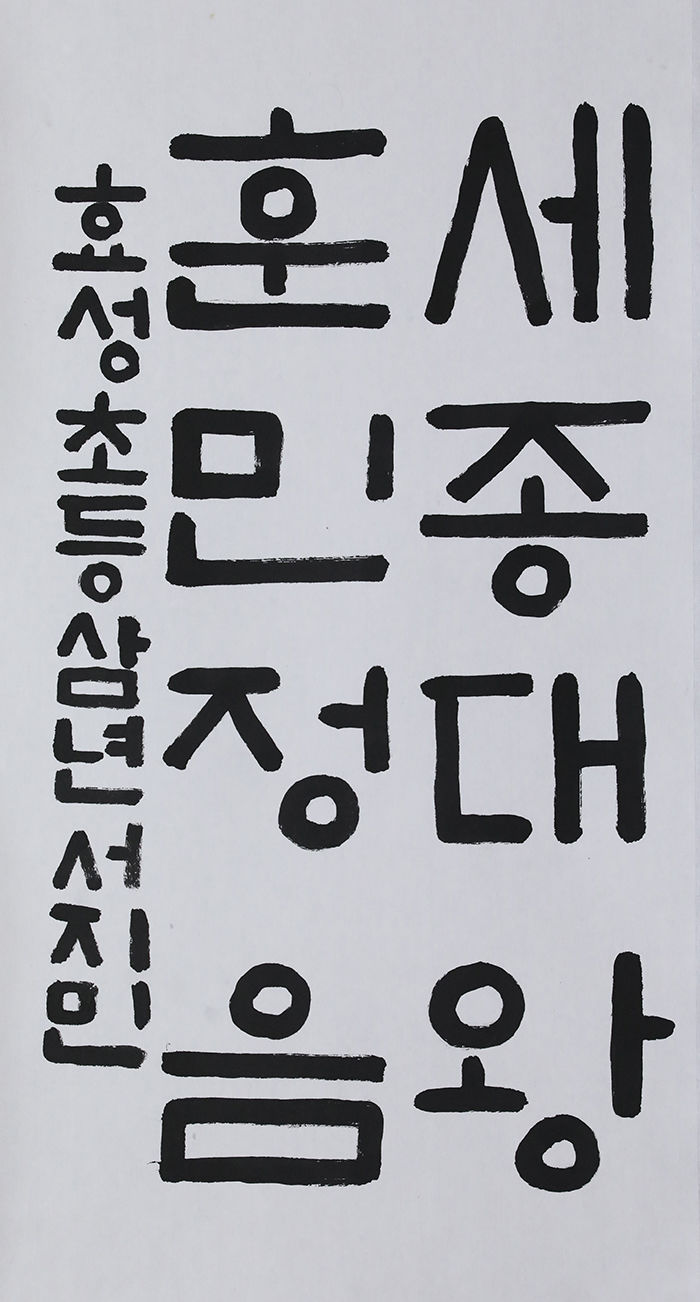 세종대왕
훈민정음
효성초등삼년서지민